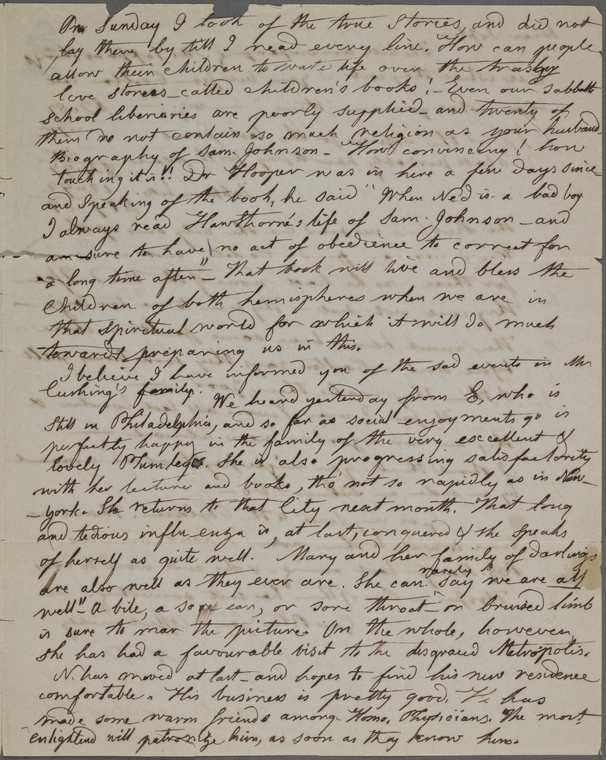 On Sunday I took of the true Stories, and did not
lay them by till I read every line. How can people
allow their children to waste life over the trashy
love stories called children's books! - Even our sabbath
school liberiaries are poorly supplied - and twenty of
them do not contain so much religion as your husband's
Biography of Sam. Johnson - How convincing! how
touching it is!! Dr Hooper was in here a few days since
and speaking of the book, he said "When Ned is a bad boy
I always read Hawthorne's life of Sam. Johnson - and
am sure to have no act of obedience to correct for
a long time after" - That book will live and bless the
Children of both hemispheres when we are in
that spiritual world for which it will do much
towards preparing us in this.
I believe I have informed you of the sad events in Mr
Cushing's family. We heard yesterday from E, who is
still in Philadelphia, and so far as social enjoyments go is
perfectly happy in the family of the very excellent &
lovely She is also progressing satisfactorily
with her lectures and books, tho not so rapidly as in New-
-York. She returns to that City next month. That long
and tedious influenza is, at last, conquered & she speaks
of herself as quite well. Mary and her family of darlings
are also well as they ever are. She can rarely say "we are all
well" A bile, a sore ear, or sore throat or bruised limb
is sure to mar the picture. On the whole, however,
she has had a favourable visit to the disgraced Metropolis.
N has moved at last - and hopes to find his new residence
comfortable. His business is pretty good. He has
made some warm friends among Homo. Physicians. The most
enlightend will patronize him, as soon as they know him.